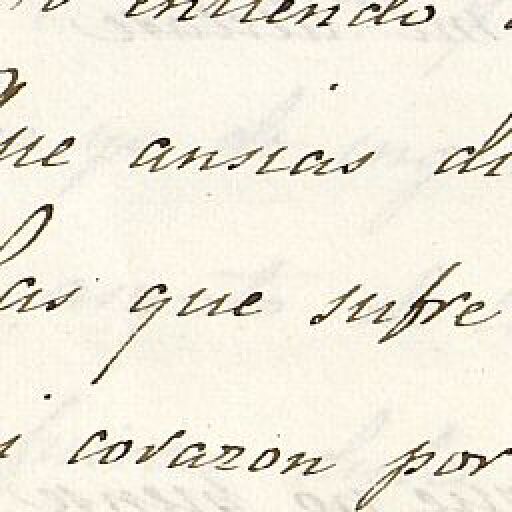 entiendo
que ansias di
las que sufre
i corazon por